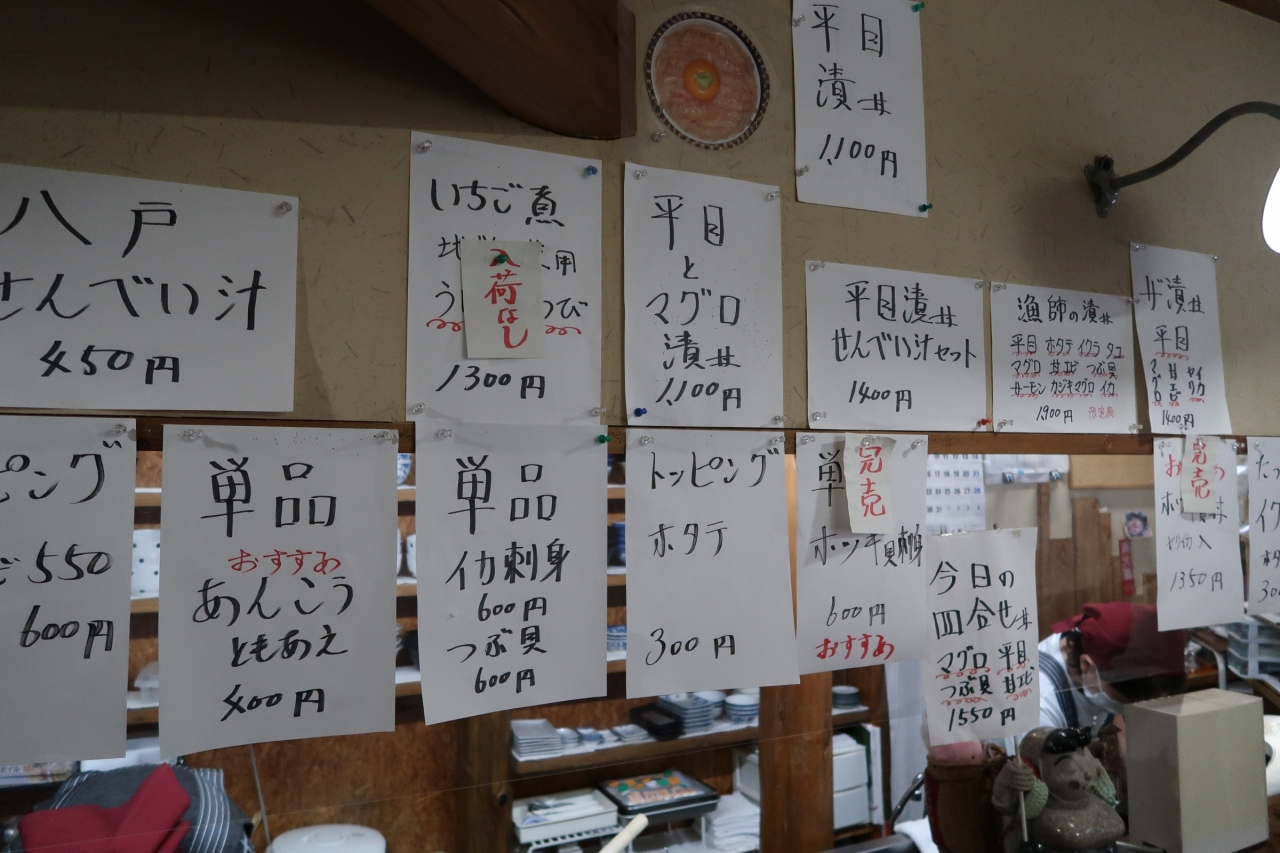 平目
漬丼
1,100円
八戸
せんべい汁
450円
いちご煮
入荷なし
1300円
平目
と
マグロ
漬丼
1,100円
平目漬丼
せんべい汁セット
1400円
漁師の漬丼
平目 ホタテ イクラ タコ
マグロ 甘エビ つぶ貝
サーモン カジキマグロ イカ
1900円
ザ漬丼
平目
1400円
ピング
550
600円
単品
おすすめ
あんこう
ともあえ
400円
単品
イカ刺身
600円
つぶ貝
600円
トッピング
ホタテ
300円
単
完売
ホッキ貝刺身
600円
おすすめ
今日の
四合せ丼
マグロ 平目
つぶ貝 甘エビ
1550円
完売
1350円